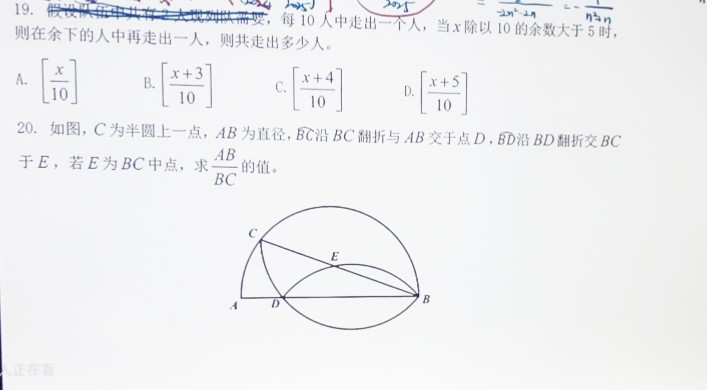 19. 假设队伍中共有 x 人现列队需要，每 10 人中走出一个人，当 x 除以 10 的余数大于 5 时，
则在余下的人中再走出一人，则共走出多少人。
A. [x/10] B. [x+3/10] C. [x+4/10] D. [x+5/10]
20. 如图，C 为半圆上一点，AB 为直径，BC沿 BC 翻折与 AB 交于点 D，BD沿 BD 翻折交 BC
于 E，若 E 为 BC 中点，求 AB/BC 的值。
C
E
A D B
人正在看